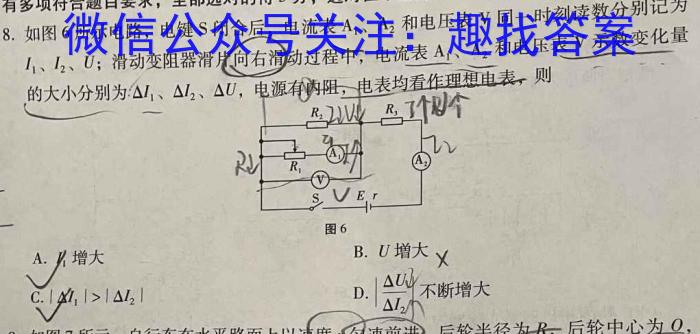 有多项符合题目要求，全部选对的得5分，
8. 如图6所示电路，电键S闭合后，电流表A₁、A₂和电压表V同一时刻读数分别记为
微信公众号关注：趣找答案
I₁、I₂、U；滑动变阻器滑片向右滑动过程中，电流表A₁、A₂和电压表V示数变化量
的大小分别为ΔI₁、ΔI₂、ΔU，电源有内阻，电表均看作理想电表，则
R₂
R₃
R₁
A₁
A₂
V
S
E r
图6
A. I₁增大
B. U增大
C. |ΔI₁|>|ΔI₂|
D. |ΔU/ΔI₂|不断增大
如图7所示，自行车在水平路面上以速度 匀速前进，后轮半径为R，后轮中心为O